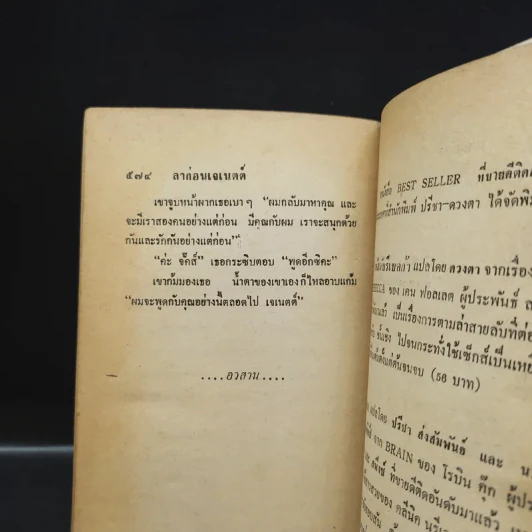 ๕๗๔ ลาก่อนเจเนตต์
เขาจูบหน้าผากเธอเบา ๆ “ผมกลับมาหาคุณ และ
จะมีเราสองคนอย่างแต่ก่อน มีคุณกับผม เราจะสนุกด้วย
กันและรักกันอย่างแต่ก่อน”
“ค่ะ จั๊คส์” เธอกระซิบตอบ “พูดอีกซิคะ”
เขาก้มมองเธอ น้ำตาของเขาเองก็ไหลอาบแก้ม
“ผมจะพูดกับคุณอย่างนี้ตลอดไป เจเนตต์”
....อวสาน....
BEST SELLER ที่ขายดีติด
ปรีชา-ดวงตา ได้จัดพิม
แปลโดย ดวงตา จากเรื่อง
ของ เคน ฟอลเลต ผู้ประพันธ์
เป็นเรื่องการตามล่าสายลับที่ต้อง
ไปจนกระทั่งใช้เซ็กส์เป็นเหย
(56 บาท)
แปลโดย ปรีชา ส่งสัมพันธ์ และ
จาก BRAIN ของ โรบิน คุ๊ก ผู้ประ
ที่ขายดีติดอันดับมาแล้ว
ของ คลีนิค